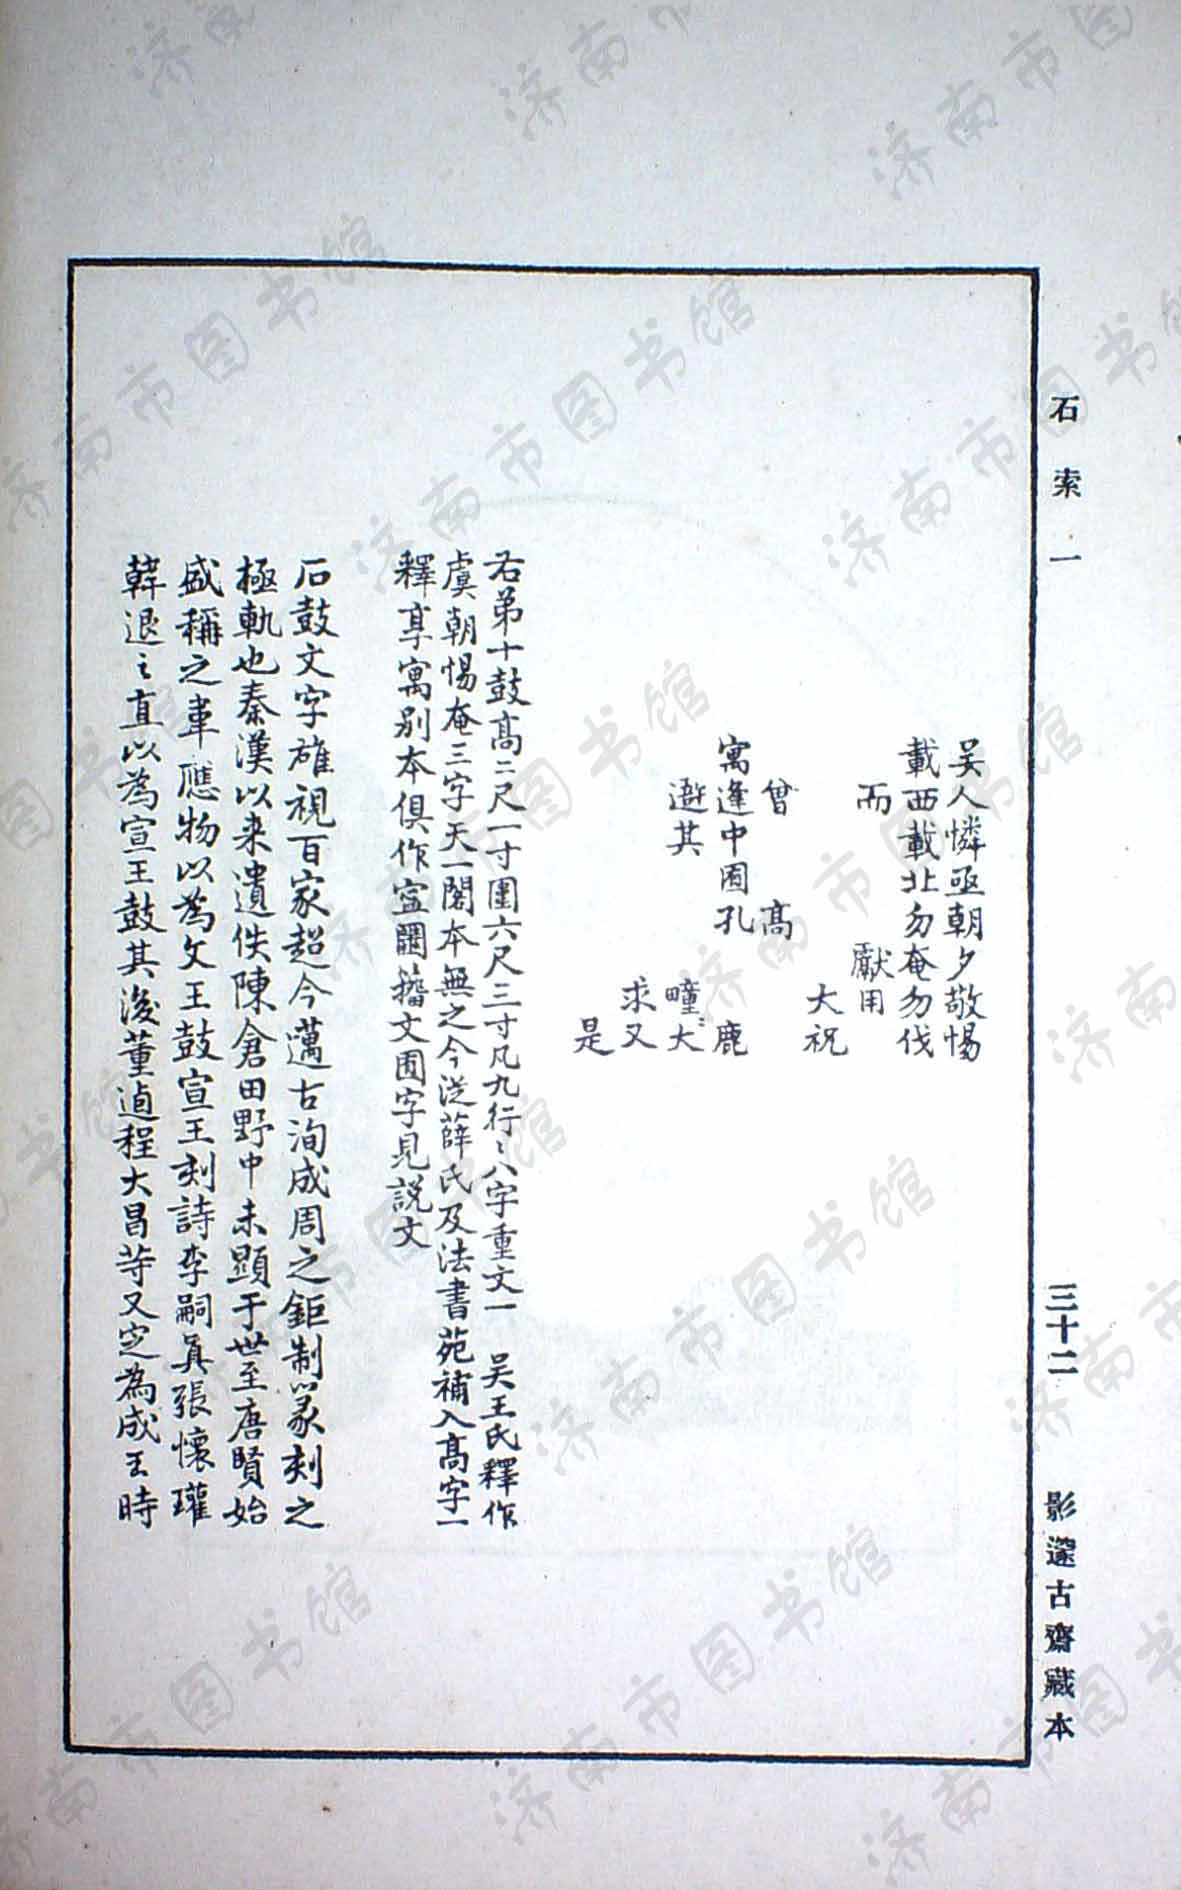 石索一 三十二 影邃古齋藏本
吴人憐亟朝夕敬惕
載西載北勿奄勿伐
而 獻用
大祝
曾 高
寓逢中囿孔 鹿
遊其 疃〻大
求又
是
右第十鼓高二尺一寸圍六尺三寸凡九行〻八字重文一 吴王氏釋作
虞朝惕奄三字天一閣本無之今從薛氏及法書苑補入高字一
釋享寓别本俱作宣籀文囿字見説文
石鼓文字雄視百家超今邁古洵成周之鉅制篆刻之
極軌也秦漢以来遺佚陳倉田野中未顯于世至唐賢始
盛稱之韋應物以為文王鼓宣王刻詩李嗣真張懷瓘
韓退之直以為宣王鼓其後董逌程大昌等又定為成王時
济南市图书馆